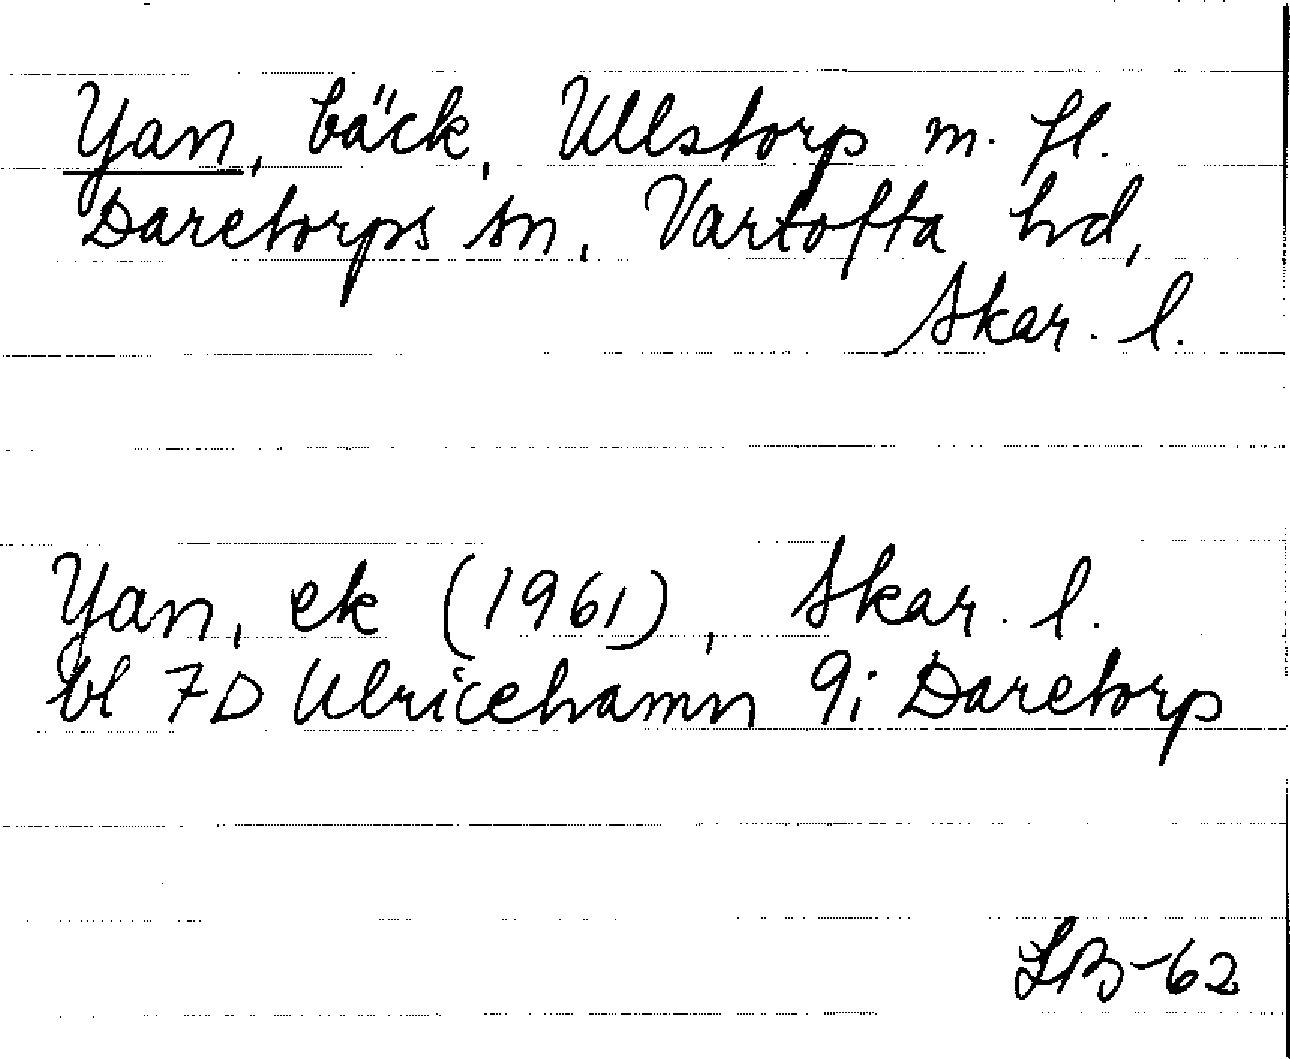 Yan, bäck, Ullstorp m. fl.
Daretorps sn, Vartofta hd,
Skar. l.
Yan, ek (1961), Skar. l.
bl 7D Ulricehamn 9i Daretorp
LB-62